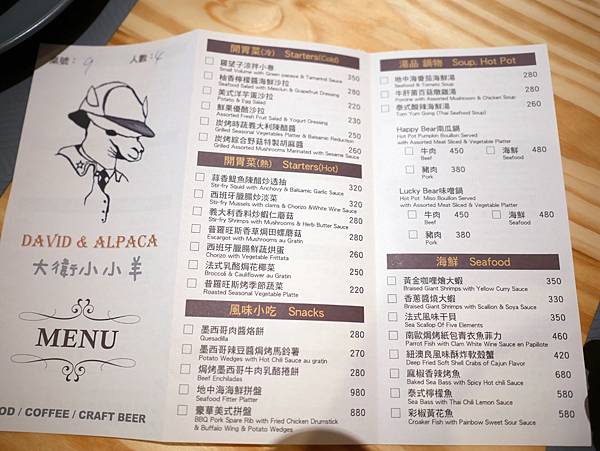 桌號： 9 人數： 4
DAVID & ALPACA
大衛小小羊
MENU
OOD / COFFEE / CRAFT BEER
開胃菜(冷) Starters(Cold)
羅望子涼拌小卷 350
Small Volume with Green papaya & Tamarind Sauce
柚香檸檬醬海鮮沙拉 280
Seafood Salad with Mesclun & Grapefruit Dressing
美式洋芋蛋沙拉 220
Potato & Egg Salad
鮮果優酪沙拉 230
Assorted Fresh Fruit Salad & Yogurt Dressing
炭烤時蔬義大利陳醋醬 250
Grilled Seasonal Vegetables Platter & Balsamic Reduction
炭烤綜合野菇特製胡麻醬 280
Grilled Assorted Mushrooms Marinated with Sesame Sauce
開胃菜(熱) Starters(Hot)
蒜香鯷魚陳醋炒透抽 320
Stir-fry Squid with Anchovy & Balsamic Garlic Sauce
西班牙臘腸炒淡菜 320
Stir-fry Mussels with clams & Chorizo &White Wine Sauce
義大利香料炒蝦仁蘑菇 280
Stir-fry Shrimps with Mushrooms & Herb Butter Sauce
普羅旺斯香草焗田螺蘑菇 280
Escargot with Mushrooms au Gratin
西班牙臘腸鮮蔬烘蛋 260
Chorizo with Vegetable Frittata
法式乳酪焗花椰菜 250
Broccoli & Cauliflower au Gratin
普羅旺斯烤季節蔬菜 220
Roasted Seasonal Vegetable Platte
風味小吃 Snacks
墨西哥肉醬烙餅 280
Quesadilla
墨西哥辣豆醬焗烤馬鈴薯 270
Potato Wedges with Hot Chili Sauce au gratin
焗烤墨西哥牛肉乳酪捲餅 280
Beef Enchiladas
地中海海鮮拼盤 980
Seafood Fitter Platter
豪華美式拼盤 880
BBQ Pork Spare Rib with Fried Chicken Drumstick
& Buffalo Wing & Potato Wedges
湯品 鍋物 Soup, Hot Pot
地中海番茄海鮮湯 280
Seafood & Tomato Soup
牛肝菌百菇燉雞湯 280
Porcine with Assorted Mushroom & Chicken Soup
泰式酸辣海鮮湯 260
Tom Yum Gong (Thai Seafood Soup)
Happy Bear南瓜鍋
Hot Pot Pumpkin Bouillon Served
with Assorted Meat Sliced & Vegetable Platter
牛肉 450 海鮮 480
Beef Seafood
豬肉 380
Pork
Lucky Bear味噌鍋
Hot Pot Miso Bouillon Served
with Assorted Meat Sliced & Vegetable Platter
牛肉 450 海鮮 480
Beef Seafood
豬肉 380
Pork
海鮮 Seafood
黃金咖哩燴大蝦 350
Braised Giant Shrimps with Yellow Curry Sauce
香蔥醬燒大蝦 330
Braised Giant Shrimps with Scallion & Soya Sauce
法式風味干貝 350
Sea Scallop Of Five Elements
南歐焗烤紙包青衣魚菲力 460
Parrot Fish with Clam White Wine Sauce en Papillote
紐澳良風味酥炸軟殼蟹 420
Deep Fried Soft Shell Crabs of Cajun Flavor
麻椒香辣烤魚 680
Baked Sea Bass with Spicy Hot chili Sauce
泰式檸檬魚 580
Sea Bass with Thai Chili Lemon Sauce
彩椒黃花魚 580
Croaker Fish with Rainbow Sweet Sour Sauce